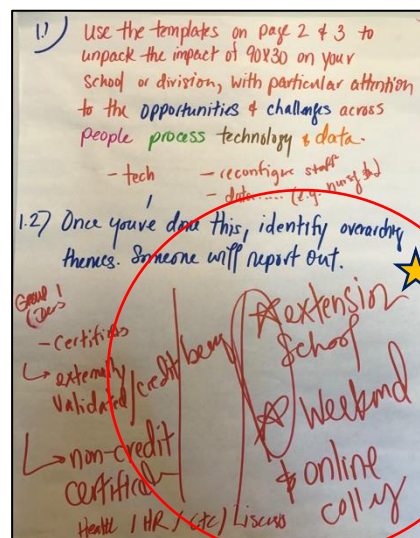 1.) Use the templates on page 2 & 3 to
unpack the impact of 90x30 on your
school or division, with particular attention
to the opportunities & challenges across
people process technology & data.
- tech
- reconfigure staff
- data..... (e.g. nursing
1.2) Once you've done this, identify overarching
themes. Someone will report out.
Group 1
- certifi
↳ externally
validated / credit
↳ non-credit
certificat
Health / HR / etc / 
☆ extension
school
☆ weekend
& online